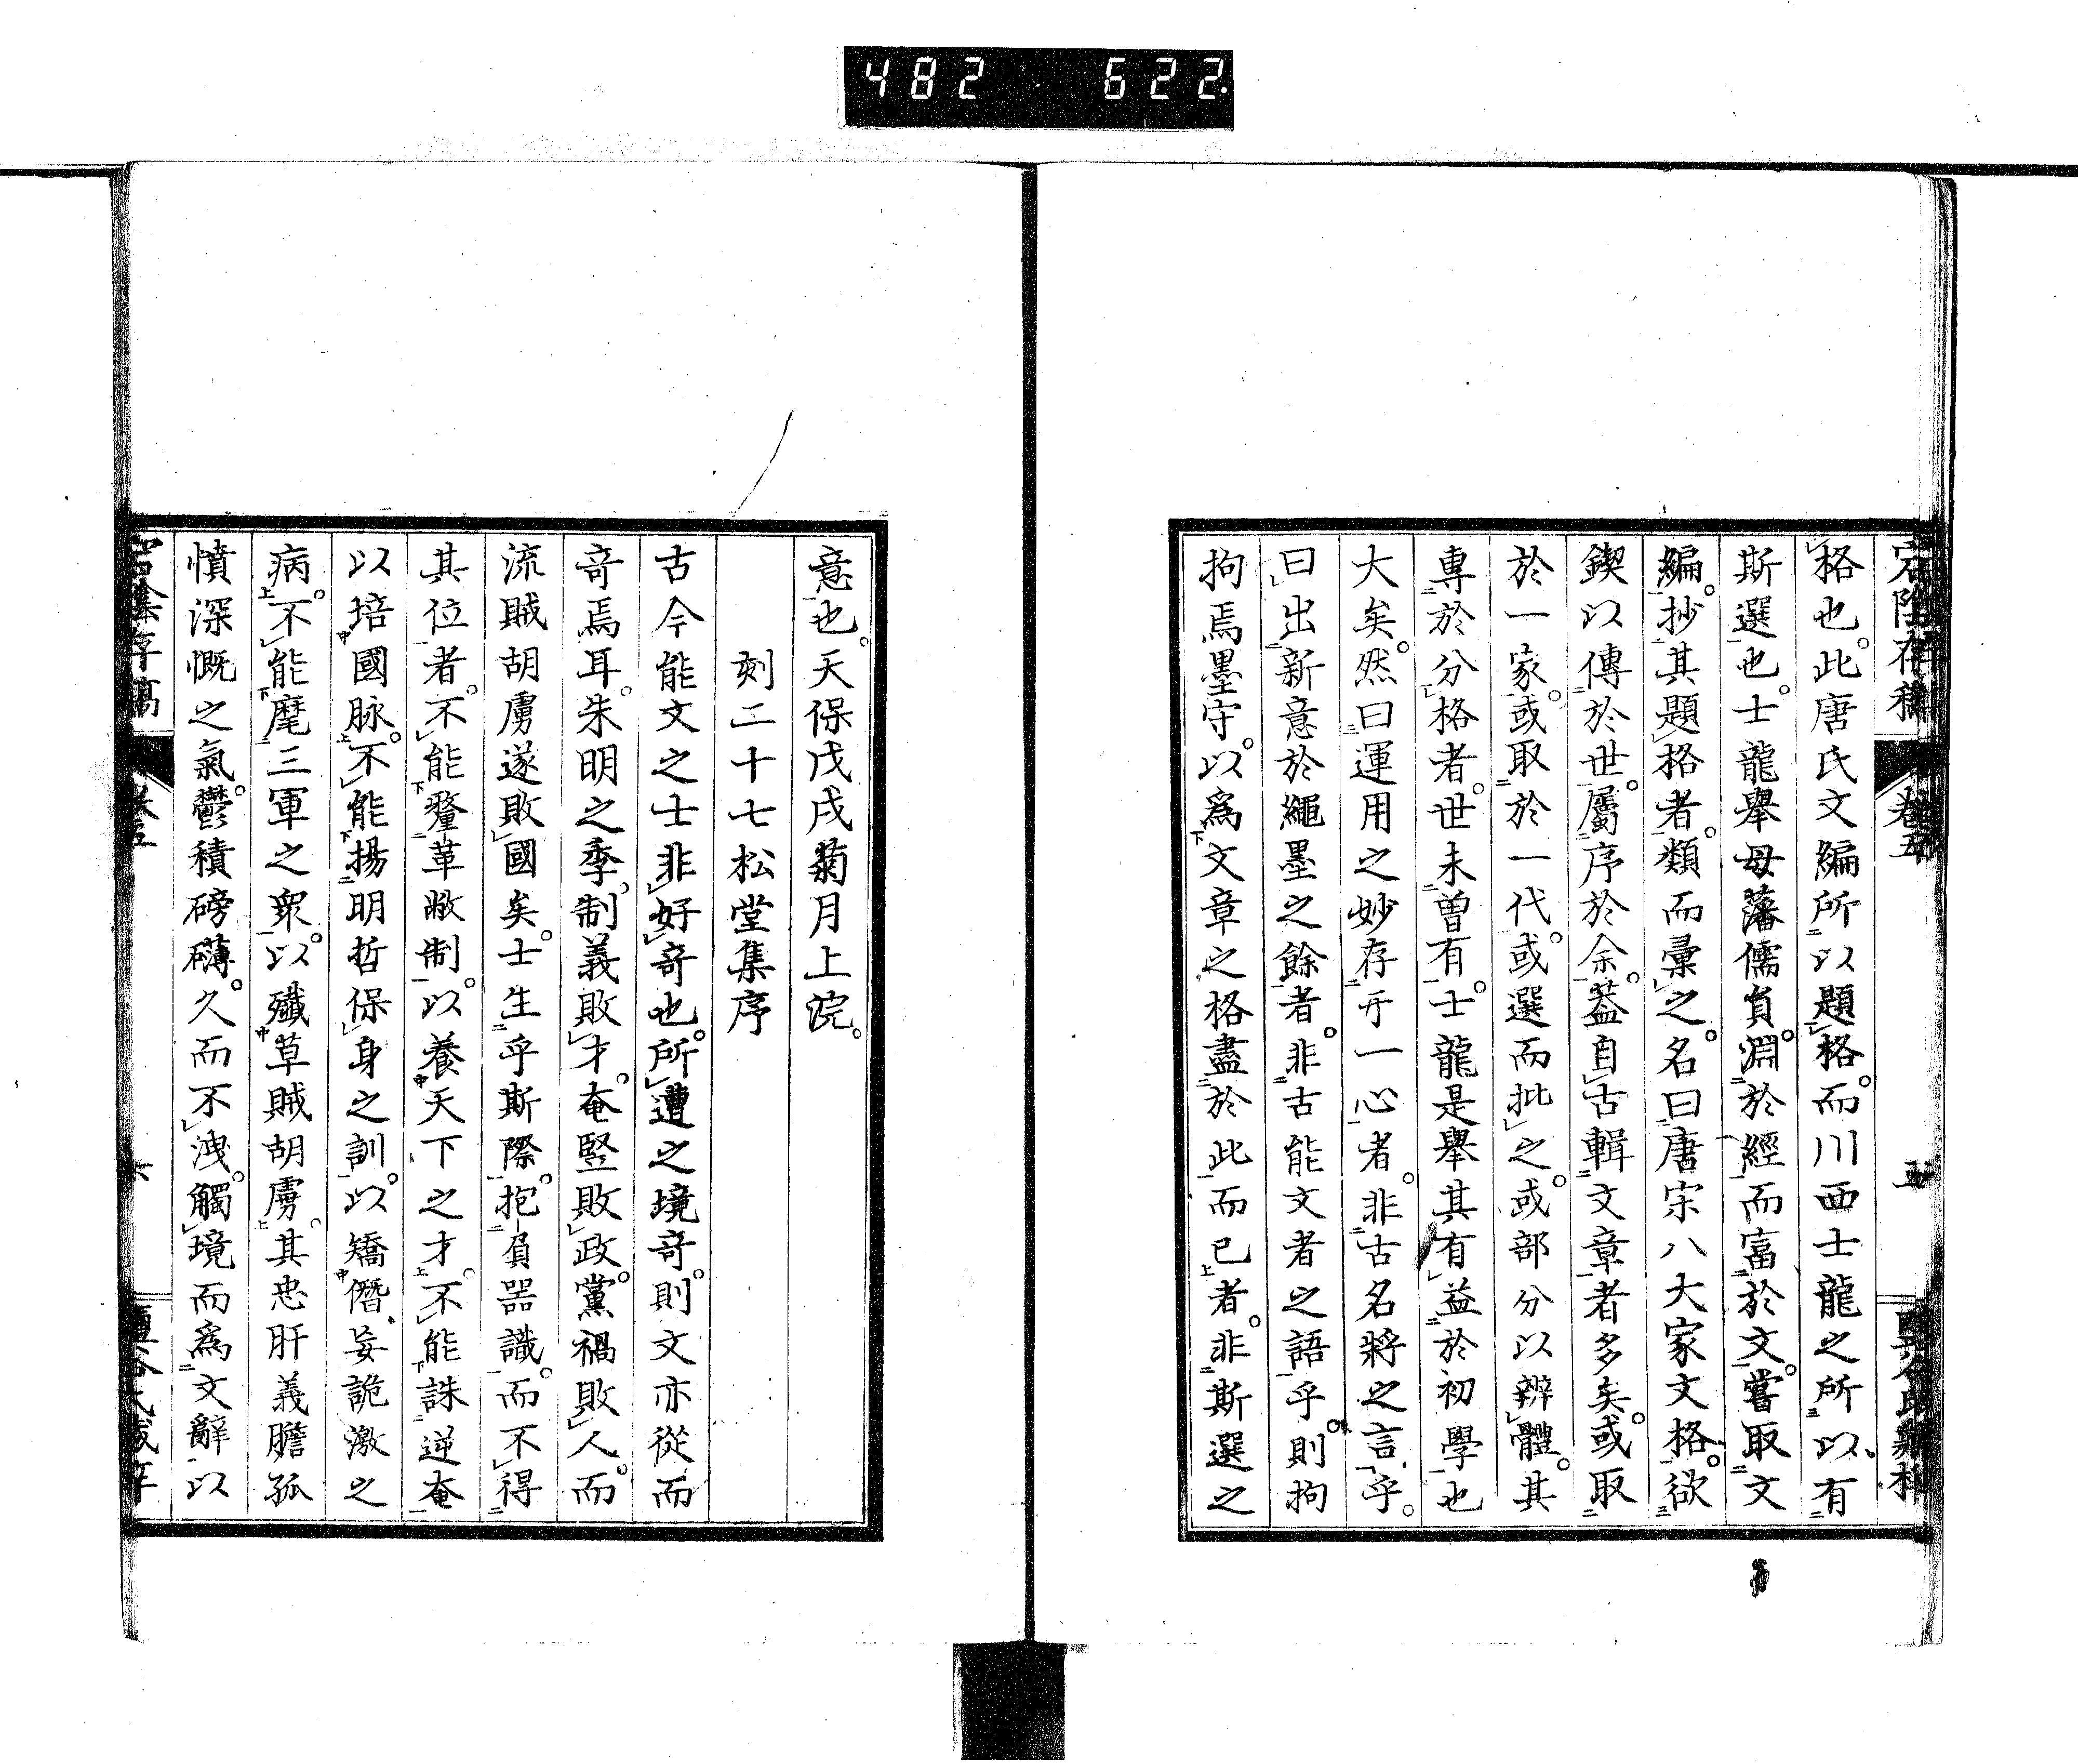 482 622
宕陰存稿 卷五 五
格也。此唐氏文編所以題格。而川西士龍之所以有
斯選也。士龍擧母藩儒員。淵於經而富於文。嘗取文
編。抄其題格者。類而彙之。名曰唐宋八大家文格。欲
鍥以傳於世。屬序於余。蓋自古輯文章者多矣。或取
於一家。或取於一代。或選而批之。或部分以辨體。其
專於分格者。世未曽有。士龍是擧其有益於初學也
大矣。然曰運用之妙存于一心者。非古名將之言乎。
曰出新意於繩墨之餘者。非古能文者之語乎。則拘
拘焉墨守。以爲文章之格盡於此而已者。非斯選之
意也。天保戊戌菊月上浣。
刻二十七松堂集序
古今能文之士非好奇也。所遭之境奇。則文亦從而
奇焉耳。朱明之季。制義敗才。奄豎敗政。黨禍敗人。而
流賊胡虜遂敗國矣。士生乎斯際。抱負器識。而不得
其位者。不能釐革敝制。以養天下之才。不能誅逆奄
以培國脉。不能揚明哲保身之訓。以矯僭妄詭激之
病。不能麾三軍之衆。以殲草賊胡虜。其忠肝義膽孤
憤深慨之氣。鬱積磅礴。久而不洩。觸境而爲文辭以
宕陰存稿 卷五 六